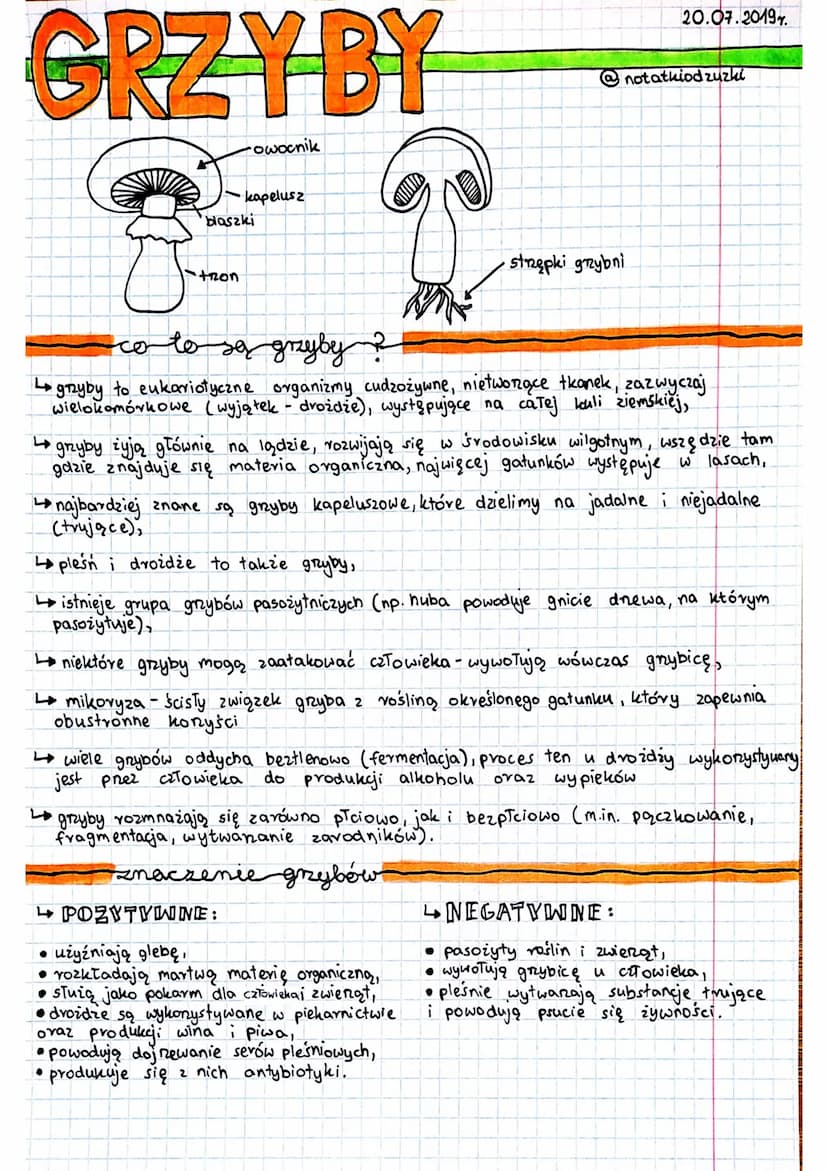 GRZYBY
20.07.2019r.
@notatkiodzuzki
owocnik
kapelusz
blaszki
trzon
strzępki grzybni
co to są grzyby?
↳ grzyby to eukariotyczne organizmy cudzożywne, nietworzące tkanek, zazwyczaj
wielokomórkowe (wyjątek - drożdże), występujące na całej kuli ziemskiej,
↳ grzyby żyją głównie na lądzie, rozwijają się w środowisku wilgotnym, wszędzie tam
gdzie znajduje się materia organiczna, najwięcej gatunków występuje w lasach,
↳ najbardziej znane są grzyby kapeluszowe, które dzielimy na jadalne i niejadalne
(trujące),
↳ pleśń i drożdże to także grzyby,
↳ istnieje grupa grzybów pasożytniczych (np. huba powoduje gnicie drzewa, na którym
pasożytuje),
↳ niektóre grzyby mogą zaatakować człowieka - wywołują wówczas grzybicę,
↳ mikoryza - ścisły związek grzyba z rośliną określonego gatunku, który zapewnia
obustronne korzyści
↳ wiele grzybów oddycha beztlenowo (fermentacja), proces ten u drożdży wykorzystywany
jest przez człowieka do produkcji alkoholu oraz wypieków
↳ grzyby rozmnażają się zarówno płciowo, jak i bezpłciowo (m.in. pączkowanie,
fragmentacja, wytwarzanie zarodników).
znaczenie grzybów
↳ POZYTYWNE:
• użyźniają glebę,
• rozkładają martwą materię organiczną,
• służą jako pokarm dla człowieka i zwierząt,
• drożdże są wykorzystywane w piekarnictwie
oraz produkcji wina i piwa,
• powodują dojrzewanie serów pleśniowych,
• produkuje się z nich antybiotyki.
↳ NEGATYWNE:
• pasożyty roślin i zwierząt,
• wywołują grzybicę u człowieka,
• pleśnie wytwarzają substancje trujące
i powodują psucie się żywności.